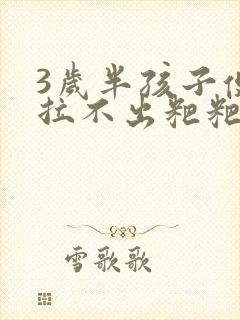 3歲半孩子便
拉不出粑粑
雪歌歌